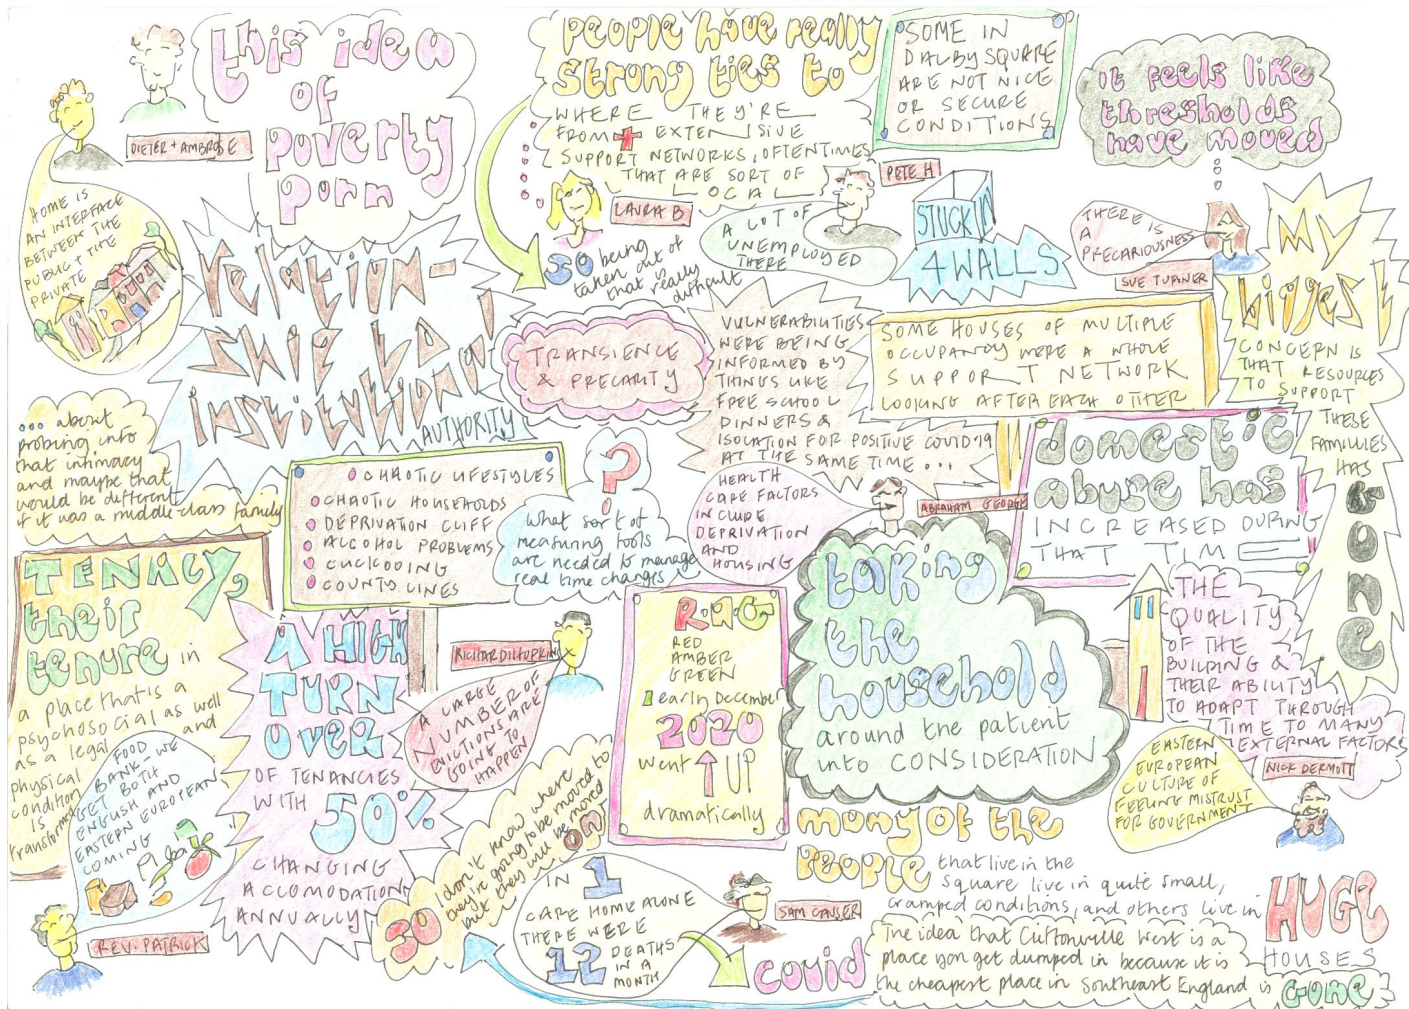 this idea
of
poverty
porn
DIETER + AMBROSE
HOME IS
AN INTERFACE
BETWEEN THE
PUBLIC + THE
PRIVATE
PEOPLE have really
strong ties to
WHERE THEY'RE
FROM + EXTENSIVE
SUPPORT NETWORKS, OFTENTIMES
THAT ARE SORT OF
LOCAL
LAURA B
SO being
taken out of
that really
difficult
SOME IN
DALBY SQUARE
ARE NOT NICE
OR SECURE
CONDITIONS
PETE H
A LOT OF
UNEMPLOYED
THERE
STUCK IN
4 WALLS
it feels like
thresholds
have moved
THERE IS
A
PRECARIOUSNESS
SUE TURNER
MY
biggest
CONCERN IS
THAT RESOURCES
TO SUPPORT
THESE
FAMILIES
HAS
GONE
relation-
ship to
institutional
AUTHORITY
TRANSIENCE
& PRECARITY
VULNERABILITIES
WERE BEING
INFORMED BY
THINGS LIKE
FREE SCHOOL
DINNERS &
ISOLATION FOR POSITIVE COVID 19
AT THE SAME TIME ...
SOME HOUSES OF MULTIPLE
OCCUPANCY WERE A WHOLE
SUPPORT NETWORK
LOOKING AFTER EACH OTHER
... about
probing into
that intimacy
and maybe that
would be different
if it was a middle-class family
CHAOTIC LIFESTYLES
CHAOTIC HOUSEHOLDS
DEPRIVATION CLIFF
ALCOHOL PROBLEMS
CUCKOOING
COUNTY LINES
?
What sort of
measuring tools
are needed to manage
real time changes
HEALTH
CARE FACTORS
INCLUDE
DEPRIVATION
AND
HOUSING
ABRAHAM GEORGE
domestic
abuse has
INCREASED DURING
THAT TIME
TENACY,
their
tenure in
a place that is a
psychosocial as well
as a legal and
physical
condition
IS
transformed
FOOD
BANK - WE
GET BOTH
ENGLISH AND
EASTERN EUROPEAN
COMING
REV. PATRICK
A HIGH
TURN
OVER
OF TENANCIES
WITH 50%
CHANGING
ACCOMODATION
ANNUALLY
RICHARD HOPKINS
A LARGE
NUMBER OF
EVICTIONS ARE
GOING TO
HAPPEN
R.A.G
RED
AMBER
GREEN
early December
2020
went UP
dramatically
taking
the
household
around the patient
into CONSIDERATION
THE
QUALITY
OF THE
BUILDING &
THEIR ABILITY
TO ADAPT THROUGH
TIME TO MANY
EXTERNAL FACTORS
NICK DERMOTT
EASTERN
EUROPEAN
CULTURE OF
FEELING MISTRUST
FOR GOVERNMENT
SO I don't know where
they're going to be moved to
but they will be moved
ON
IN 1
CARE HOME ALONE
THERE WERE
12 DEATHS
IN A
MONTH
SAM CAUSER
covid
many of the
PEOPLE that live in the
square live in quite small,
cramped conditions, and others live in
HUGE
HOUSES
The idea that Cliftonville West is a
place you get dumped in because it is
the cheapest place in Southeast England is
GONE